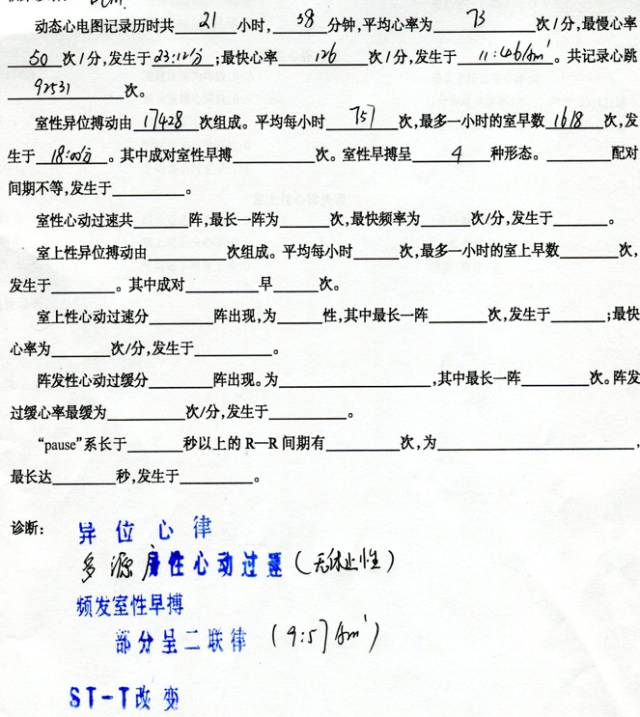 动态心电图记录历时共 21 小时, 38 分钟,平均心率为 73 次/分,最慢心率
50 次/分,发生于 23:12分;最快心率 126 次/分,发生于 11:46Am。共记录心跳
92531 次。
室性异位搏动由 17428 次组成。平均每小时 757 次,最多一小时的室早数 1618 次,发
生于 18:00分。其中成对室性早搏______次。室性早搏呈 4 种形态。______配对
间期不等,发生于______。
室性心动过速共______阵,最长一阵为______次,最快频率为______次/分,发生于______。
室上性异位搏动由______次组成。平均每小时______次,最多一小时的室上早数______次,
发生于______。其中成对______早______次。
室上性心动过速分______阵出现,为______性,其中最长一阵______次,发生于______;最快
心率为______次/分,发生于______。
阵发性心动过缓分______阵出现。为______,其中最长一阵______次。阵发
过缓心率最缓为______次/分,发生于______。
“pause”系长于______秒以上的R—R间期有______次,为______,
最长达______秒,发生于______。
诊断: 异位心律
多源房性心动过速(无休止性)
频发室性早搏
部分呈二联律 (9:57Am)
ST-T改变